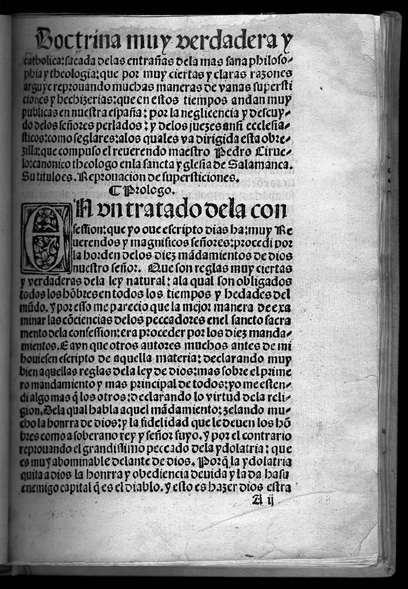 Doctrina muy verdadera y
catholica: sacada delas entrañas dela mas sana philoso-
phia y theologia: que por muy ciertas y claras razones
arguye reprouando muchas maneras de vanas supersti
ciones y hechizerias: que en estos tiempos andan muy
publicas en nuestra españa: por la negligencia y descuy-
do delos señores perlados: y delos juezes assi ecclesia-
sticos: como seglares: alos quales va dirigida esta obre-
zilla: que compuso el reuerendo maestro Pedro Cirue-
lo: canonico theologo en la sancta yglesia de Salamanca.
Su titulo es. Reprouacion de supersticiones.
¶ Prologo.
EN vn tratado dela con
fession: que yo oue escripto dias ha: muy Re
uerendos y magnificos señores: procedi por
la horden delos diez mãdamientos de dios
nuestro señor. Que son reglas muy ciertas
y verdaderas dela ley natural: ala qual son obligados
todos los hõbres en todos los tiempos y hedades del
mũdo. Y por esso me parecio que la mejor manera de exa
minar las cõciencias delos peccadores en el sancto sacra
mento dela confession: era proceder por los diez manda-
mientos. E avn que otros autores muchos antes de mi
houiessen escripto de aquella materia: declarando muy
bien aquellas reglas dela ley de dios: mas sobre el prime
ro mandamiento y mas principal de todos: yo me esten-
di algo mas q̃ los otros: declarando lo virtud dela reli-
gion. Dela qual habla aquel mãdamiento: zelando mu-
cho la honrra de dios: y la fidelidad que le deuen los hõ
bres como a soberano rey y señor suyo. Y por el contrario
reprouando el grandissimo peccado dela ydolatria: que
es muy abominable delante de dios. Porq̃ la ydolatria
quita a dios la honrra y obediencia deuida y la da a su
enemigo capital q̃ es el diablo. y esto es hazer dios estra
A ij